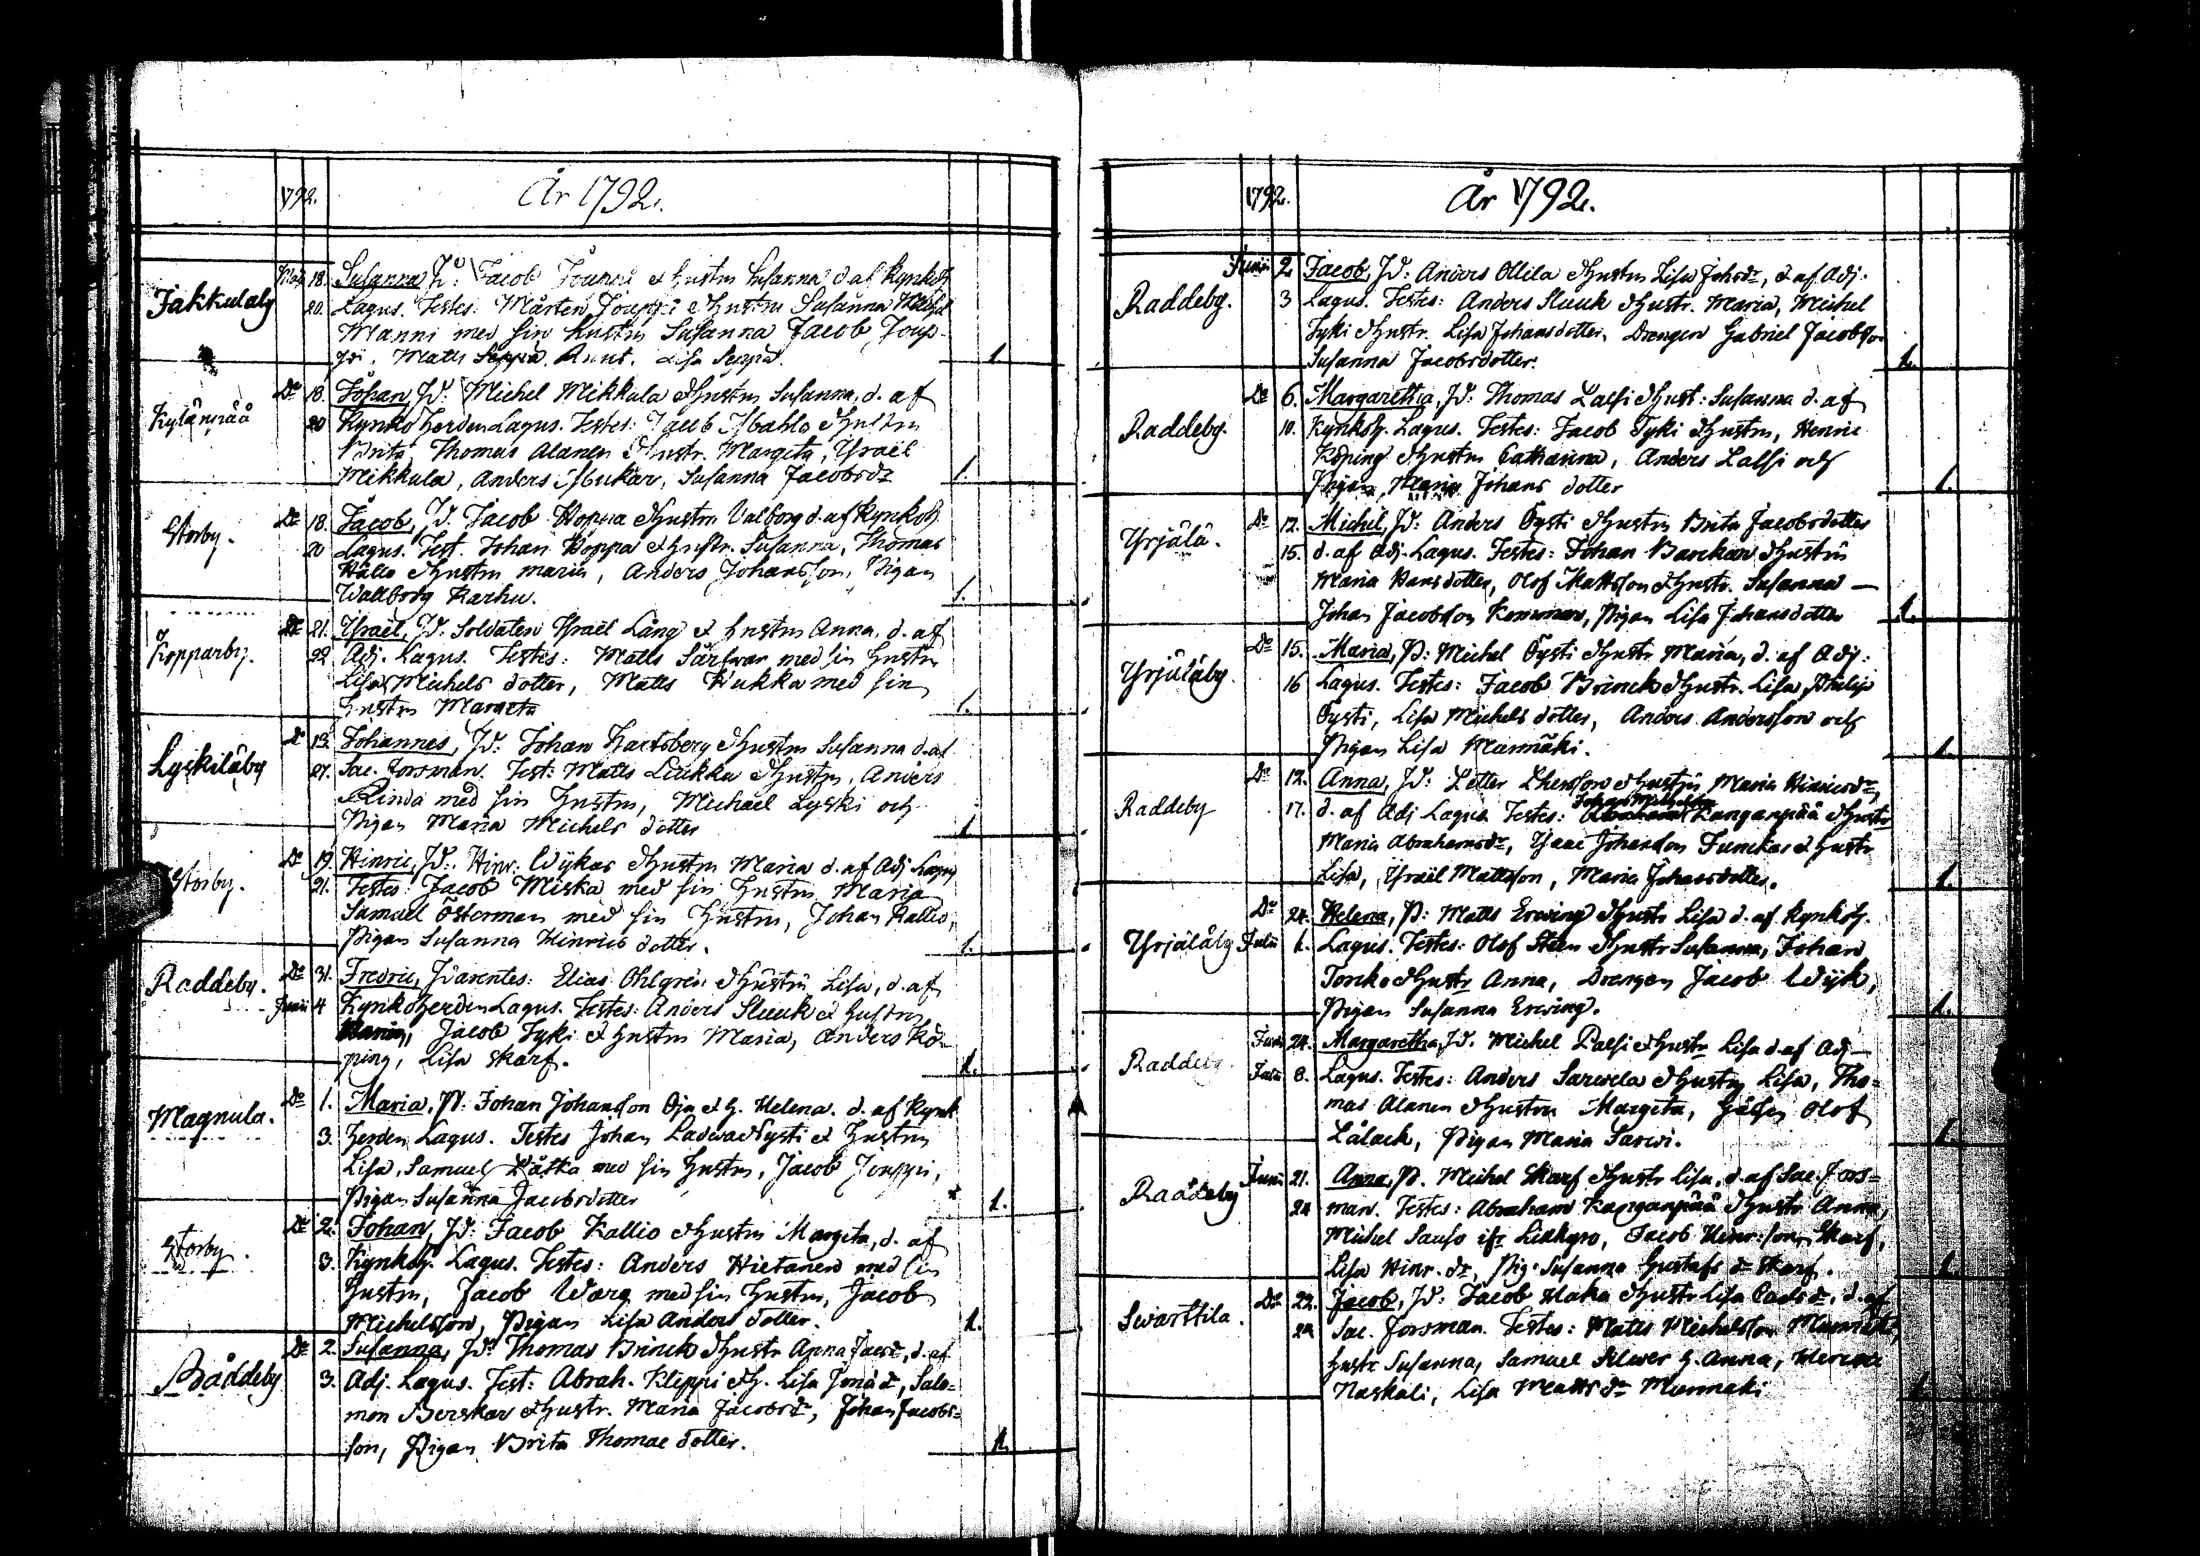 1792. År 1792.
Jakkulaby Maij 18. Susanna, P: Jacob Jouppi & Hustru Susanna d. af Kynkoh
20. Lagus. Testes: Mårten Jouppi & Hustru Susanna
Manni med sin Hustru Susanna Jacob Joup-
pi, Matts Seppä, Lisa Seppä. 1.
Kylänpää Do 18. Johan, P: Michel Mikkula & Hustru Susanna, d. af
20 Kynkoherden Lagus. Testes: Jacob & Hustru
Brita, Thomas Alanen & Hustr. Margeta, Ysraël
Mikkula, Anders, Susanna Jacobsdr 1.
Storby. Do 18. Jacob, P. Jacob Hoppa & Hustru Valborg d. af Kynkoh.
20 Lagus. Test. Johan Hoppa & Hustr. Susanna, Thomas
& Hustru Maria, Anders Johansson, Pigan
Wallborg Karhu. 1.
Kopparby. Do 21. Ysraël, P. Soldaten Ysraël Lång & Hustru Anna, d. af
22 Adj. Lagus. Testes: Matts med sin Hustru
Lisa Michels dotter, Matts Kukka med sin
Hustru Margeta 1.
Lyskiläby Do 13. Johannes, P: Johan Hartsberg & Hustru Susanna d. af
27. Sac. Forsman. Test: Matts Liukku & Hustru, Anders
Rinda med sin Hustru, Michael Lyski och
Pigan Maria Michels dotter 1
Storby. Do 19. Hinric, P: Hinr. Wykar & Hustru Maria d. af Adj. Lagus
21. Testes: Jacob Miska med sin Hustru Maria
Samuel Österman med sin Hustru, Johan Kallio,
Pigan Susanna Hinrics dotter. 1.
Raddeby. Do 31. Fredric, Parentes: Elias Ohlgren & Hustru Lisa, d. af
Junii 4 Kynkoherden Lagus. Testes: Anders Sluuk & Hustru
Maria, Jacob Tyki & Hustru Maria, Anders Kö-
ping, Lisa Skarf. 1.
Magnula. Do 1. Maria, P: Johan Johansson Oja & H. Helena. d. af Kynk
3. herden Lagus. Testes Johan & Hustru
Lisa, Samuel Lätka med sin Hustru, Jacob Jouppi,
Pigan Susanna Jacobsdotter 1.
Storby. Do 2. Johan, P: Jacob Kallio & Hustru Margeta, d. af
3. Kynkoh. Lagus. Testes: Anders Hietanen med sin
Hustru, Jacob Warg med sin Hustru, Jacob
Michelsson, Pigan Lisa Anders dotter. 1.
Råddeby Do 2. Susanna, P: Thomas Brinck & Hustr Anna Jacdr, d. af
3. Adj. Lagus. Test: Abrah. Klippi & H. Lisa, Salo-
mon Berskar & Hustr. Maria Jacobsdr, Johan Jacobs-
son, Pigan Brita Thomae dotter. 1.
1792. År 1792.
Raddeby. Junii 2 Jacob, P: Anders Ollila & Hustru Lisa Johsdr, d. af Adj.
3 Lagus. Testes: Anders Sluuk & Hustr. Maria, Michel
Tyki & Hustr. Lisa Johansdotter, Drengen Gabriel Jacobson
Susanna Jacobsdotter. 1.
Raddeby. Do 6. Margaretha, P: Thomas Lassi & Hust: Susanna d. af
10. Kynkoh. Lagus. Testes: Jacob Tyki & Hustru, Henric
Köping & Hustru Catharina, Anders Lassi och
Pigan Maria Johans dotter 1.
Yrjälä. Do 12. Michel, P: Anders Öysti & Hustru Brita Jacobsdotter
15. d. af Adj. Lagus. Testes: Johan Barckar & Hustru
Maria Hansdotter, Olof Mattsson & Hustr. Susanna —
Johan Jacobsson, Pigan Lisa Johansdotter 1.
Yrjäläby. Do 15. Maria, P: Michel Öysti & Hustr Maria, d. af Adj:
16 Lagus. Testes: Jacob Brinck & Hustr. Lisa, Philip
Öysti, Lisa Michels dotter, Anders Andersson och
Pigan Lisa Mannäki. 1.
Raddeby Do 12. Anna, P: Petter & Hustru Maria Hinricsdr,
17. d. af Adj Lagus. Testes: Kanganpää & Hustr
Maria Abrahamsdr, Ysaac Johanson Funckar & Hustr
Lisa, Ysraël Mattsson, Maria Johansdotter. 1.
Yrjäläby Do 24. Helena, P: Matts Erwing & Hustr Lisa d. af Kynkoh.
Julii 1. Lagus. Testes: Olof Steen & Hustr Susanna, Johan
Tonko & Hustr Anna, Drengen Jacob Wijk,
Pigan Susanna Erwing. 1.
Raddeby Junii 24. Margaretha, P. Michel Passi & Hustr Lisa d. af Adj —
Julii 8. Lagus. Testes: Anders Sarwela & Hustru Lisa, Tho-
mas Alanen & Hustru Margeta, Olof
Lålack, Pigan Maria Sarwi. 1.
Raddeby Junii 21. Anna, P. Michel Skarf & Hustr Lisa, d. af Sac. Fors-
24 man. Testes: Abraham Kanganpää & Hustr Anna,
Michel Sauso ifr Lillkyro, Jacob Hinr:son Skarf,
Lisa Hinr. dr, Pig: Susanna Gustafs dr Skarf. 1.
Swarttila. Do 22. Jacob, P: Jacob Haka & Hustr Lisa Carlsdr, d. af
24 Sac. Forsman. Testes: Matts Michelsson
Hustr Susanna, Samuel Silwer H. Anna,
Naskali, Lisa Matts dr Mannaki 1